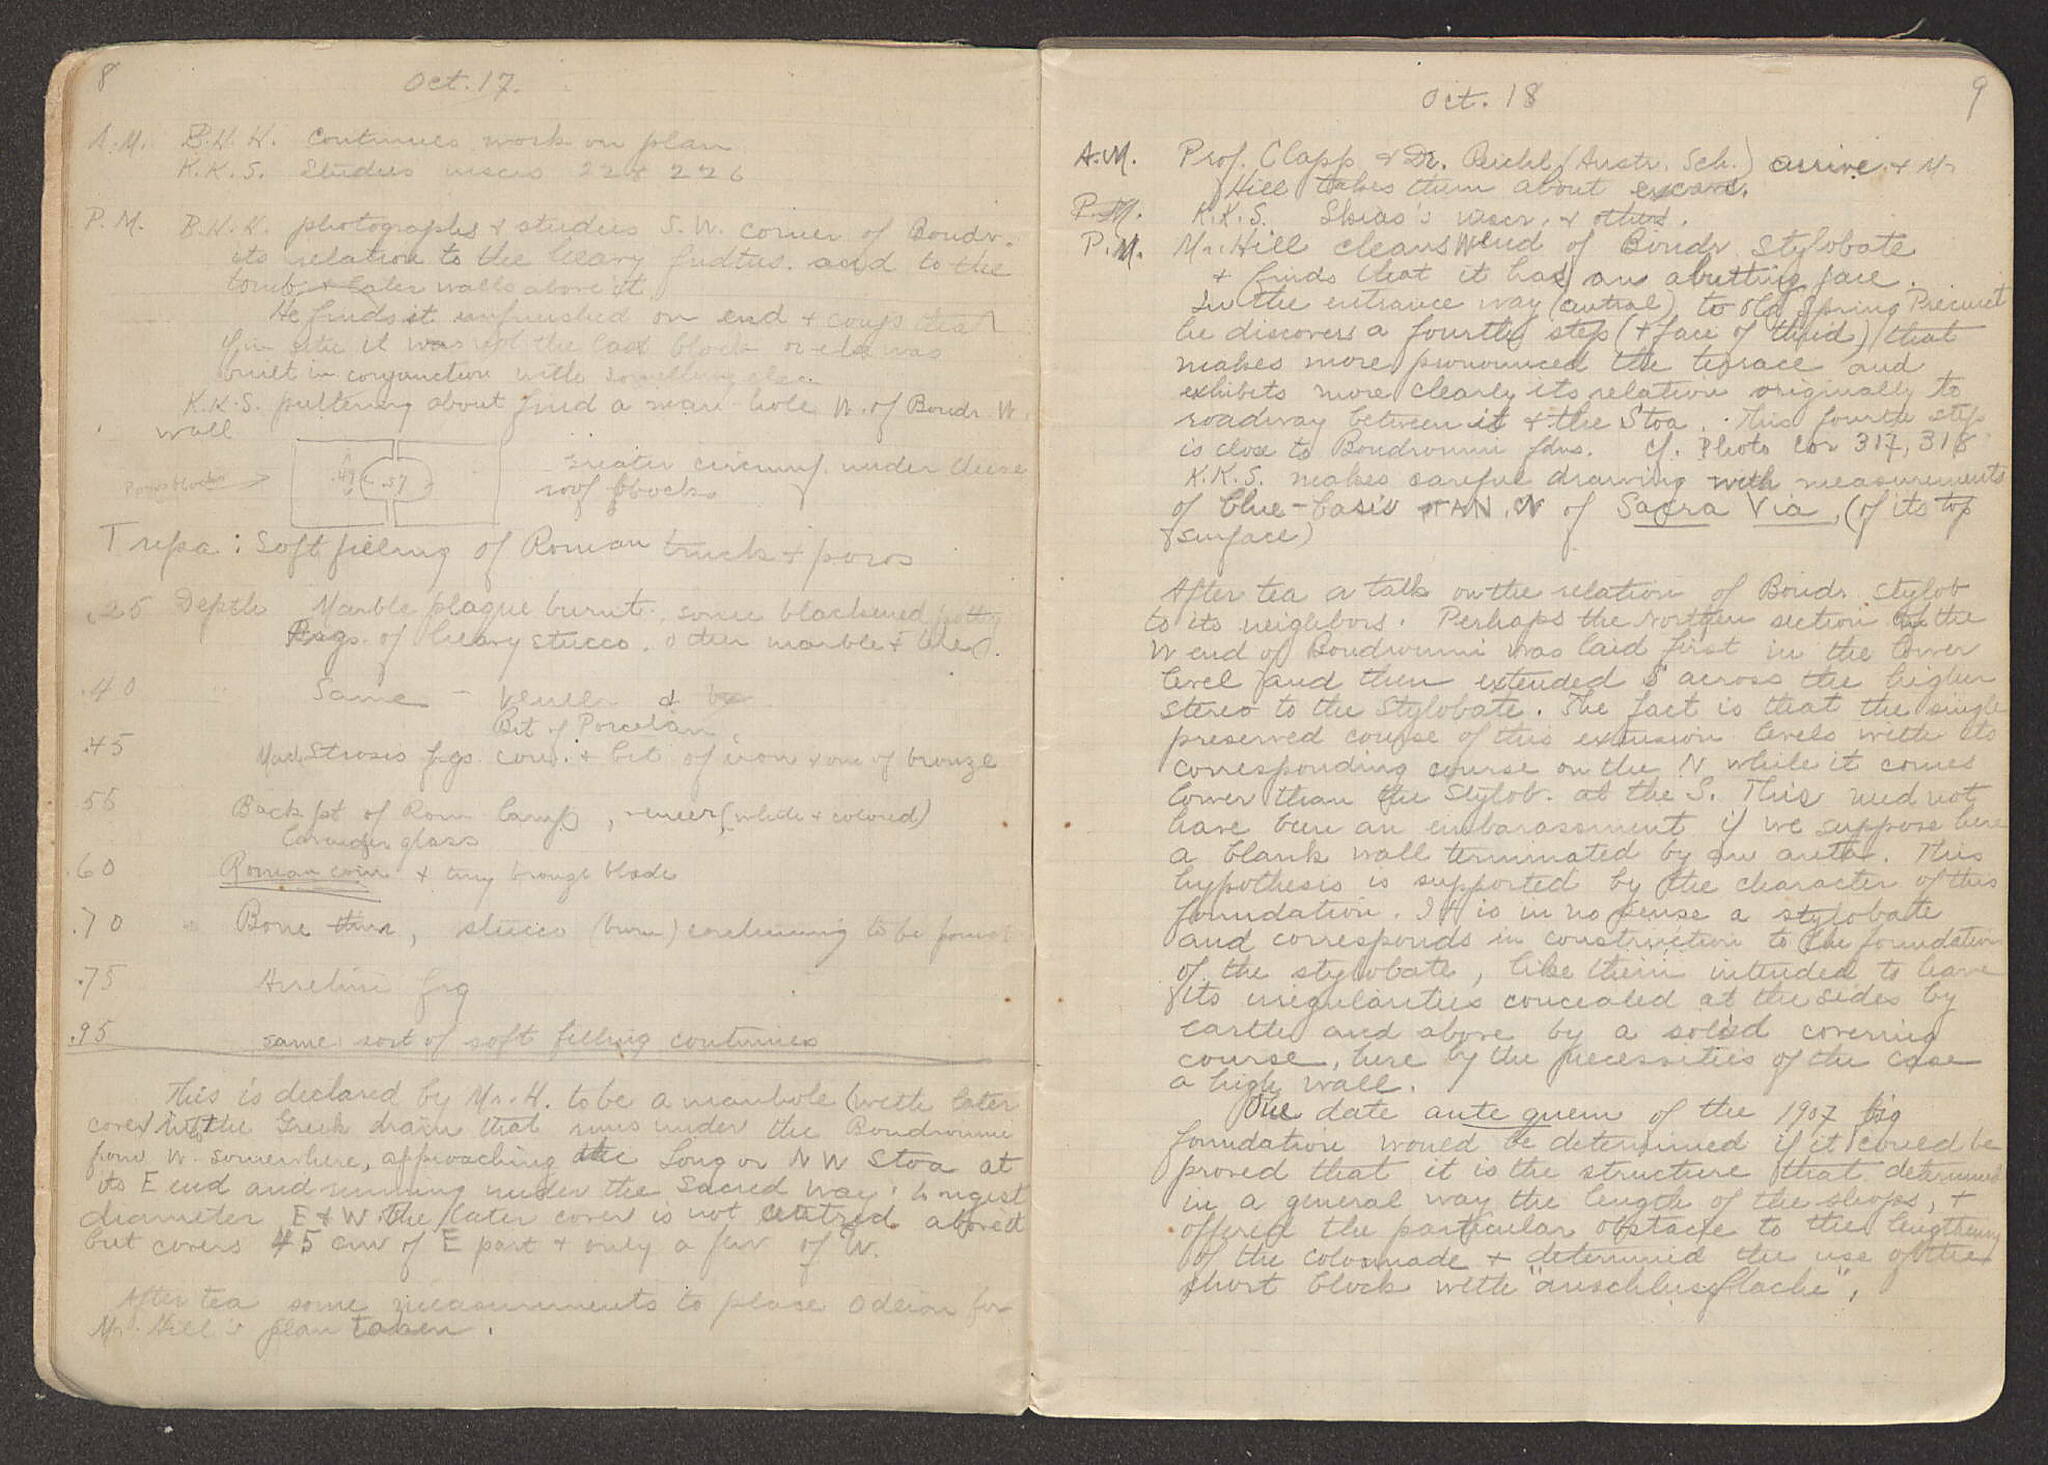 8
Oct. 17.
A.M. B.H.H. continues work on plan
K.K.S. Studies inscrs 22 & 226
P.M. B.H.H. photographs & studies S.W. corner of Boudr.
its relation to the heavy fndtns. and to the
tomb & later walls above it
He finds it unfinished on end & conjs that
if in situ it was not the last block or else was
built in conjunction with something else.
K.K.S. puttering about find a man-hole W. of Boudr W.
wall
Poros blocks
.47 .57
Greater circumf. under these
roof blocks
Trypa: Soft filling of Roman truck & poros
.25 Depth Marble plaque burnt. some blackened pottery
Frgs. of heavy stucco. Other marble & tiles.
.40 " Same – Veneer &
Bit of Porcelain.
.45 Strosis fgs. cow. & bit of iron & one of bronze
.55 Back pt of Rom lamp, veneer, (white & colored)
Lavender glass
.60 Roman coin & tiny bronze blade
.70 " Bone thin, stucco (burn) continuing to be found
.75 Arretine frg
.95 same sort of soft filling continues
This is declared by Mr. H. to be a manhole (with later
cover) into the Greek drain that runs under the Boudroumi
from W. somewhere, approaching the Long or NW Stoa at
its E end and running under the Sacred Way. Longest
diameter E & W. The later cover is not centred above it
but covers 45 cm of E part & only a few of W.
After tea some measurements to place Odeion for
Mr. Hill's plan taken.
9
Oct. 18
A.M. Prof. Clapp & Dr. Reichl (Austr. Sch.) arrive & Mr
Hill takes them about excavs.
P.M. K.K.S. Skias's inscr. & others.
P.M. Mr. Hill cleans W end of Boudr Stylobate
& finds that it has an abutting face.
In the entrance way (central) to Old Spring Precinct
he discovers a fourth step (& face of third) that
makes more pronounced the terrace and
exhibits more clearly its relation originally to
roadway between it & the Stoa. This fourth step
is close to Boudroumi fdns. Cf. Photo Cor 317, 318
K.K.S. makes careful drawing with measurements
of blue-basis N of Sacra Via, (of its top
surface)
After tea a talk on the relation of Boudr. Stylob
to its neighbors. Perhaps the northern section of the
W end of Boudroumi was laid first in the lower
level and then extended S across the higher
stereo to the Stylobate. The fact is that the single
preserved course of this extension levels with its
corresponding course on the N while it comes
lower than the Stylob. at the S. This need not
have been an embarassment if we suppose here
a blank wall terminated by an anta. This
hypothesis is supported by the character of this
foundation. It is in no sense a stylobate
and corresponds in construction to the foundation
of the stylobate, like them intended to have
its irregularities concealed at the sides by
earth and above by a solid covering
course, here by the necessities of the case
a high wall.
The date ante quem of the 1907 big
foundation would be determined if it could be
proved that it is the structure that determined
in a general way the length of the shops, &
offered the particular obstacle to the lengthening
of the colonnade & determined the use of the
short block with "anschlussflache".